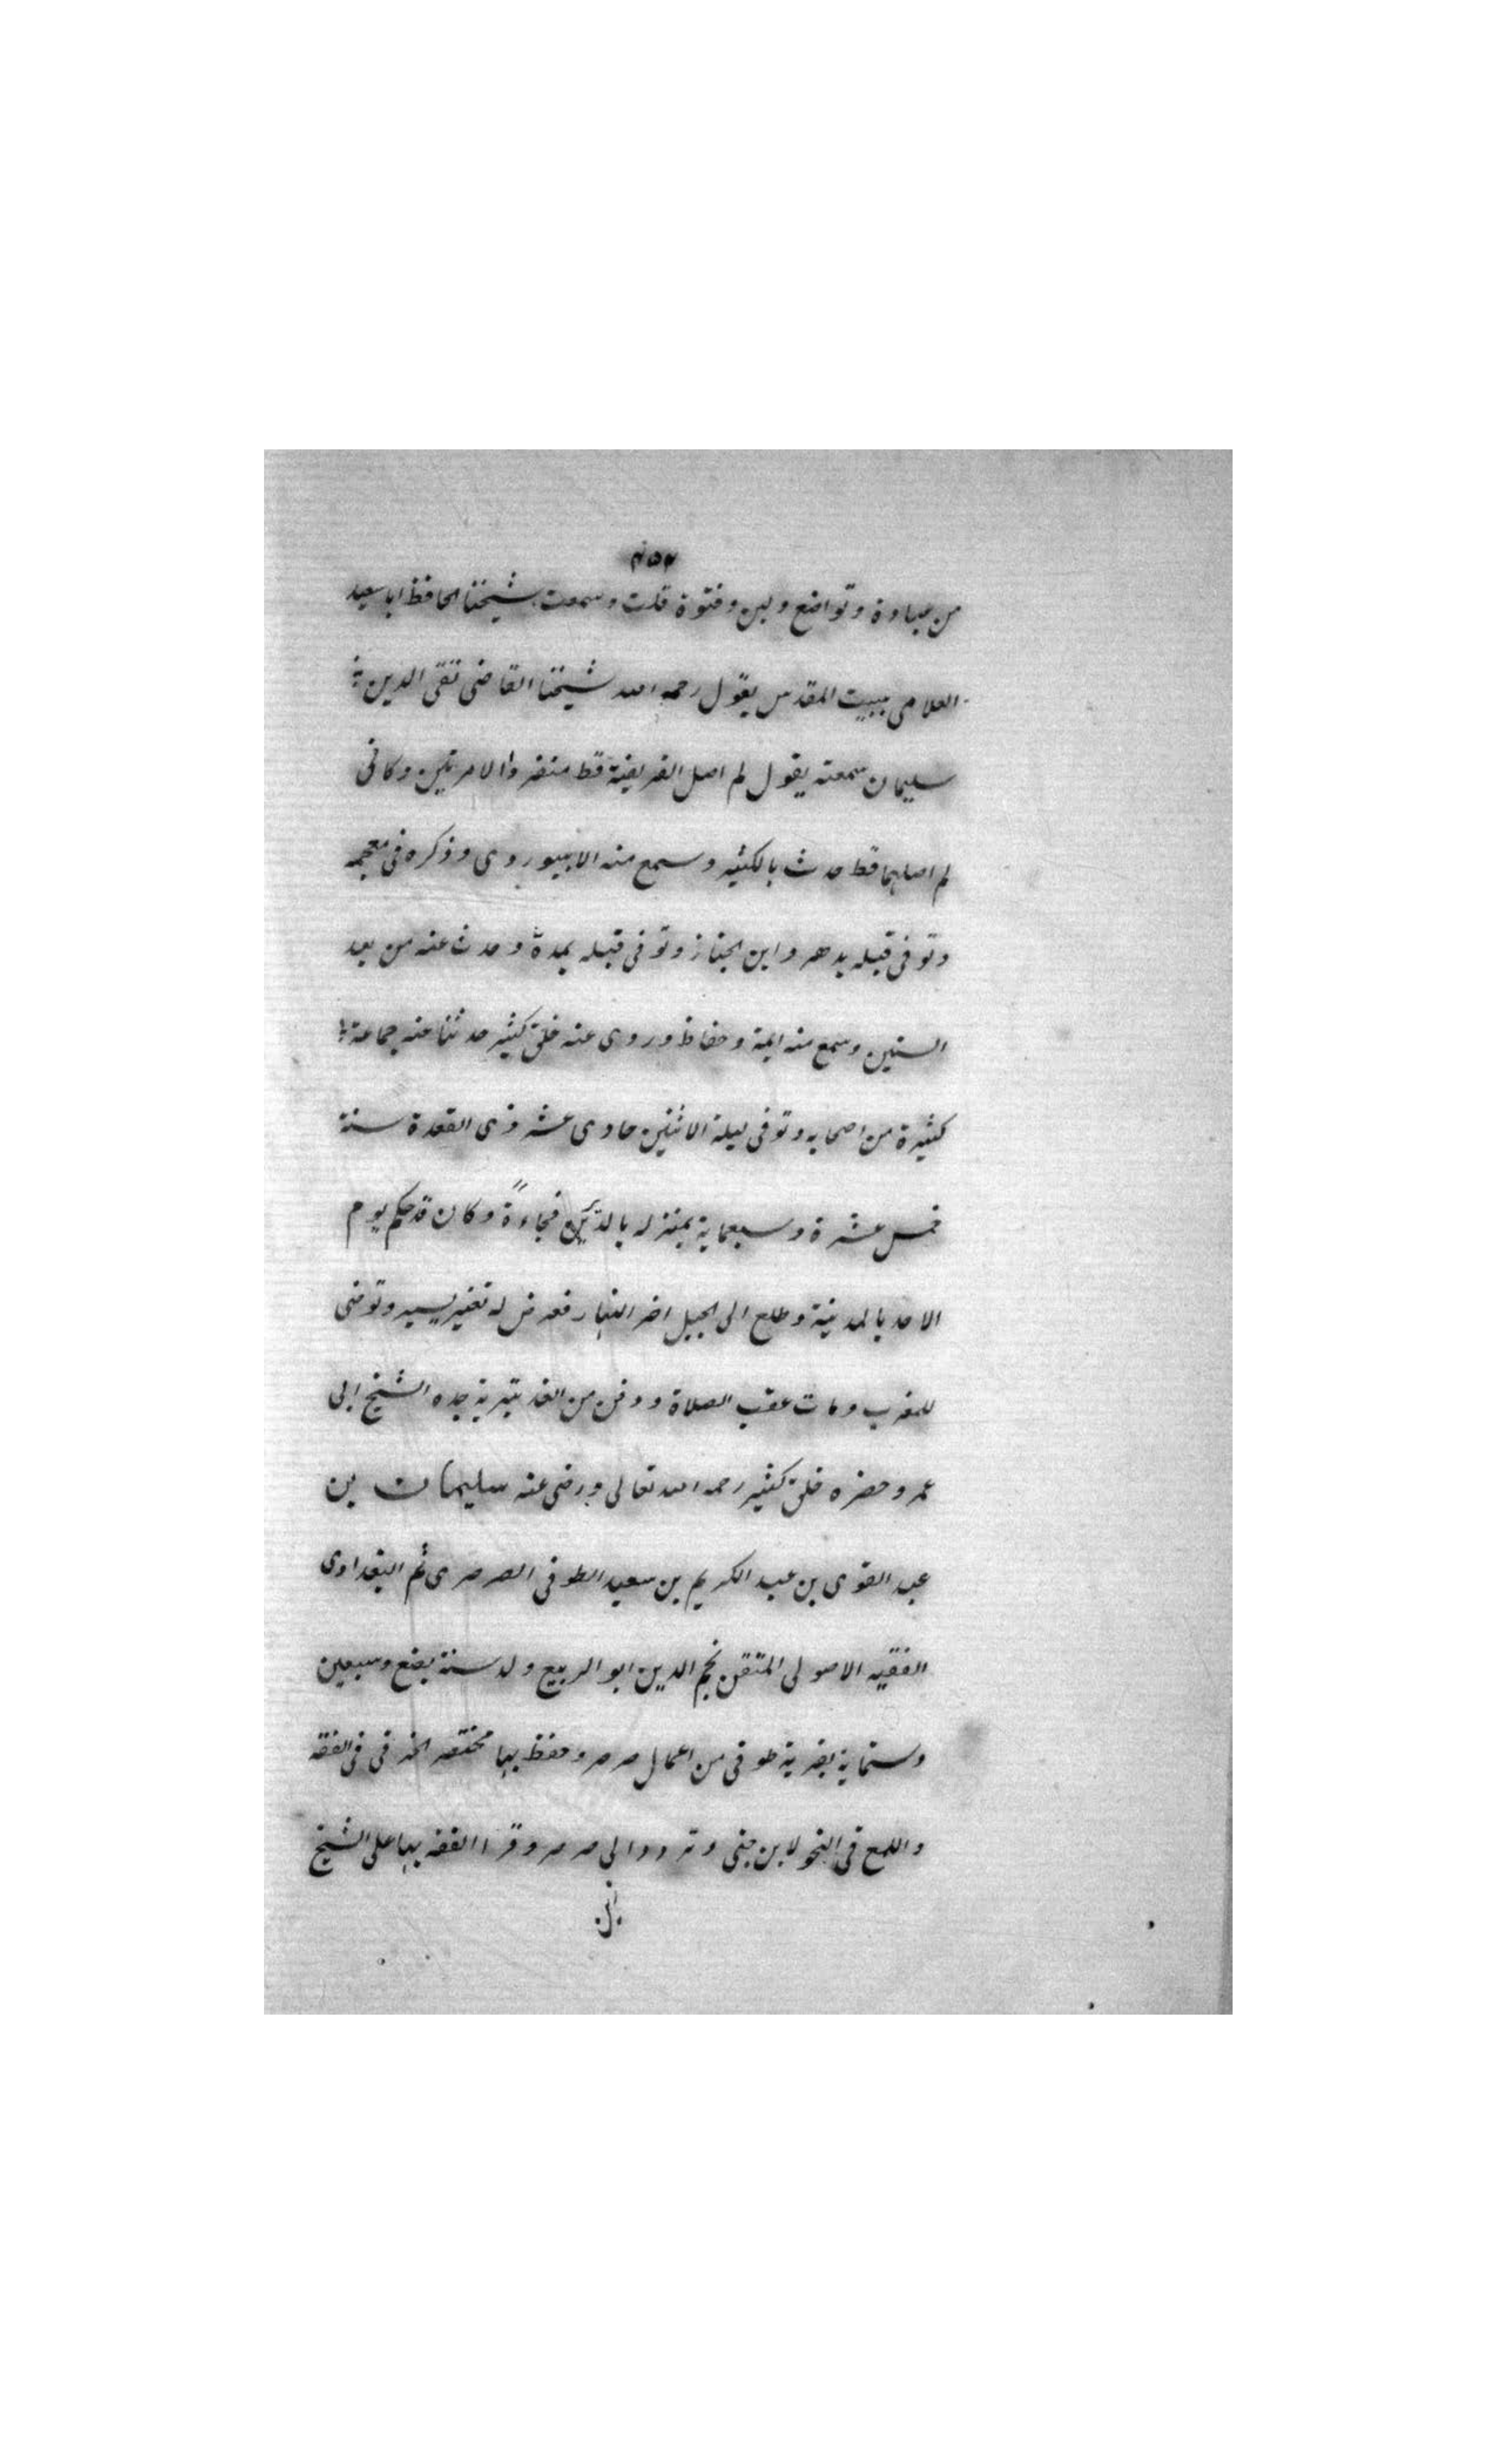 ٤٥٢
من عبادة وتواضع ولين وفتوة قلت وسمعت شيخنا الحافظ ابا سعيد
العلامى ببيت المقدس يقول رحمه الله شيخنا القاضى تقى الدين
سليمان سمعته يقول لم اصل الفريضة قط منفردا الا مرتين وكانى
لم اصلهما قط حدث بالكثير وسمع منه الابيوردى وذكره فى معجمه
وتوفى قبله بدهر وابن الخباز وتوفى قبله بمدة وحدث عنه من بعد
الستين وسمع منه ايمة وحفاظ وروى عنه خلق كثير حدثنا عنه جماعة
كثيرة من اصحابه وتوفى ليلة الاثنين حادى عشر ذى القعدة سنة
خمس عشرة وسبعماية بمنزله بالدير فجاءة وكان قد حكم يوم
الاحد بالمدينة وطلع الى الجبل اخر النهار فعرض له تغير يسير وتوضى
للمغرب ومات عقب الصلاة ودفن من الغد بتربة جده الشيخ ابى
عمر وحضره خلق كثير رحمه الله تعالى ورضى عنه سليمان بن
عبد القوى بن عبد الكريم بن سعيد الطوفى الصرصرى ثم البغدادى
الفقيه الاصولى المتقن نجم الدين ابو الربيع ولد سنة بضع وسبعين
وستماية بقرية طوفى من اعمال صرصر وحفظ بها مختصر الخرقى فى الفقه
واللمع فى النحو لابن جنى وتردد الى صرصر وقرا الفقه بها على الشيخ